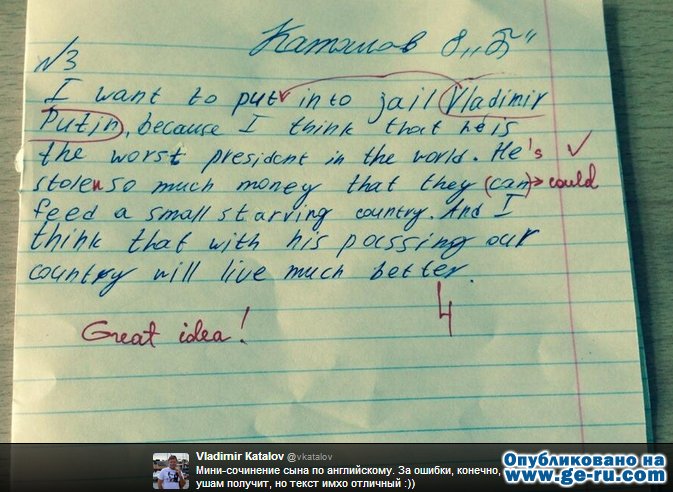 Каталов 8 „Б"
N3
I want to put into jail Vladimir
Putin, because I think that he is
the worst president in the world. He's ✓
stolen so much money that they (can) → could
feed a small starving country. And I
think that with his passing our
country will live much better.
4
Great idea!
Vladimir Katalov @vkatalov
Мини-сочинение сына по английскому. За ошибки, конечно,
ушам получит, но текст имхо отличный :))
Опубликовано на
www.ge-ru.com